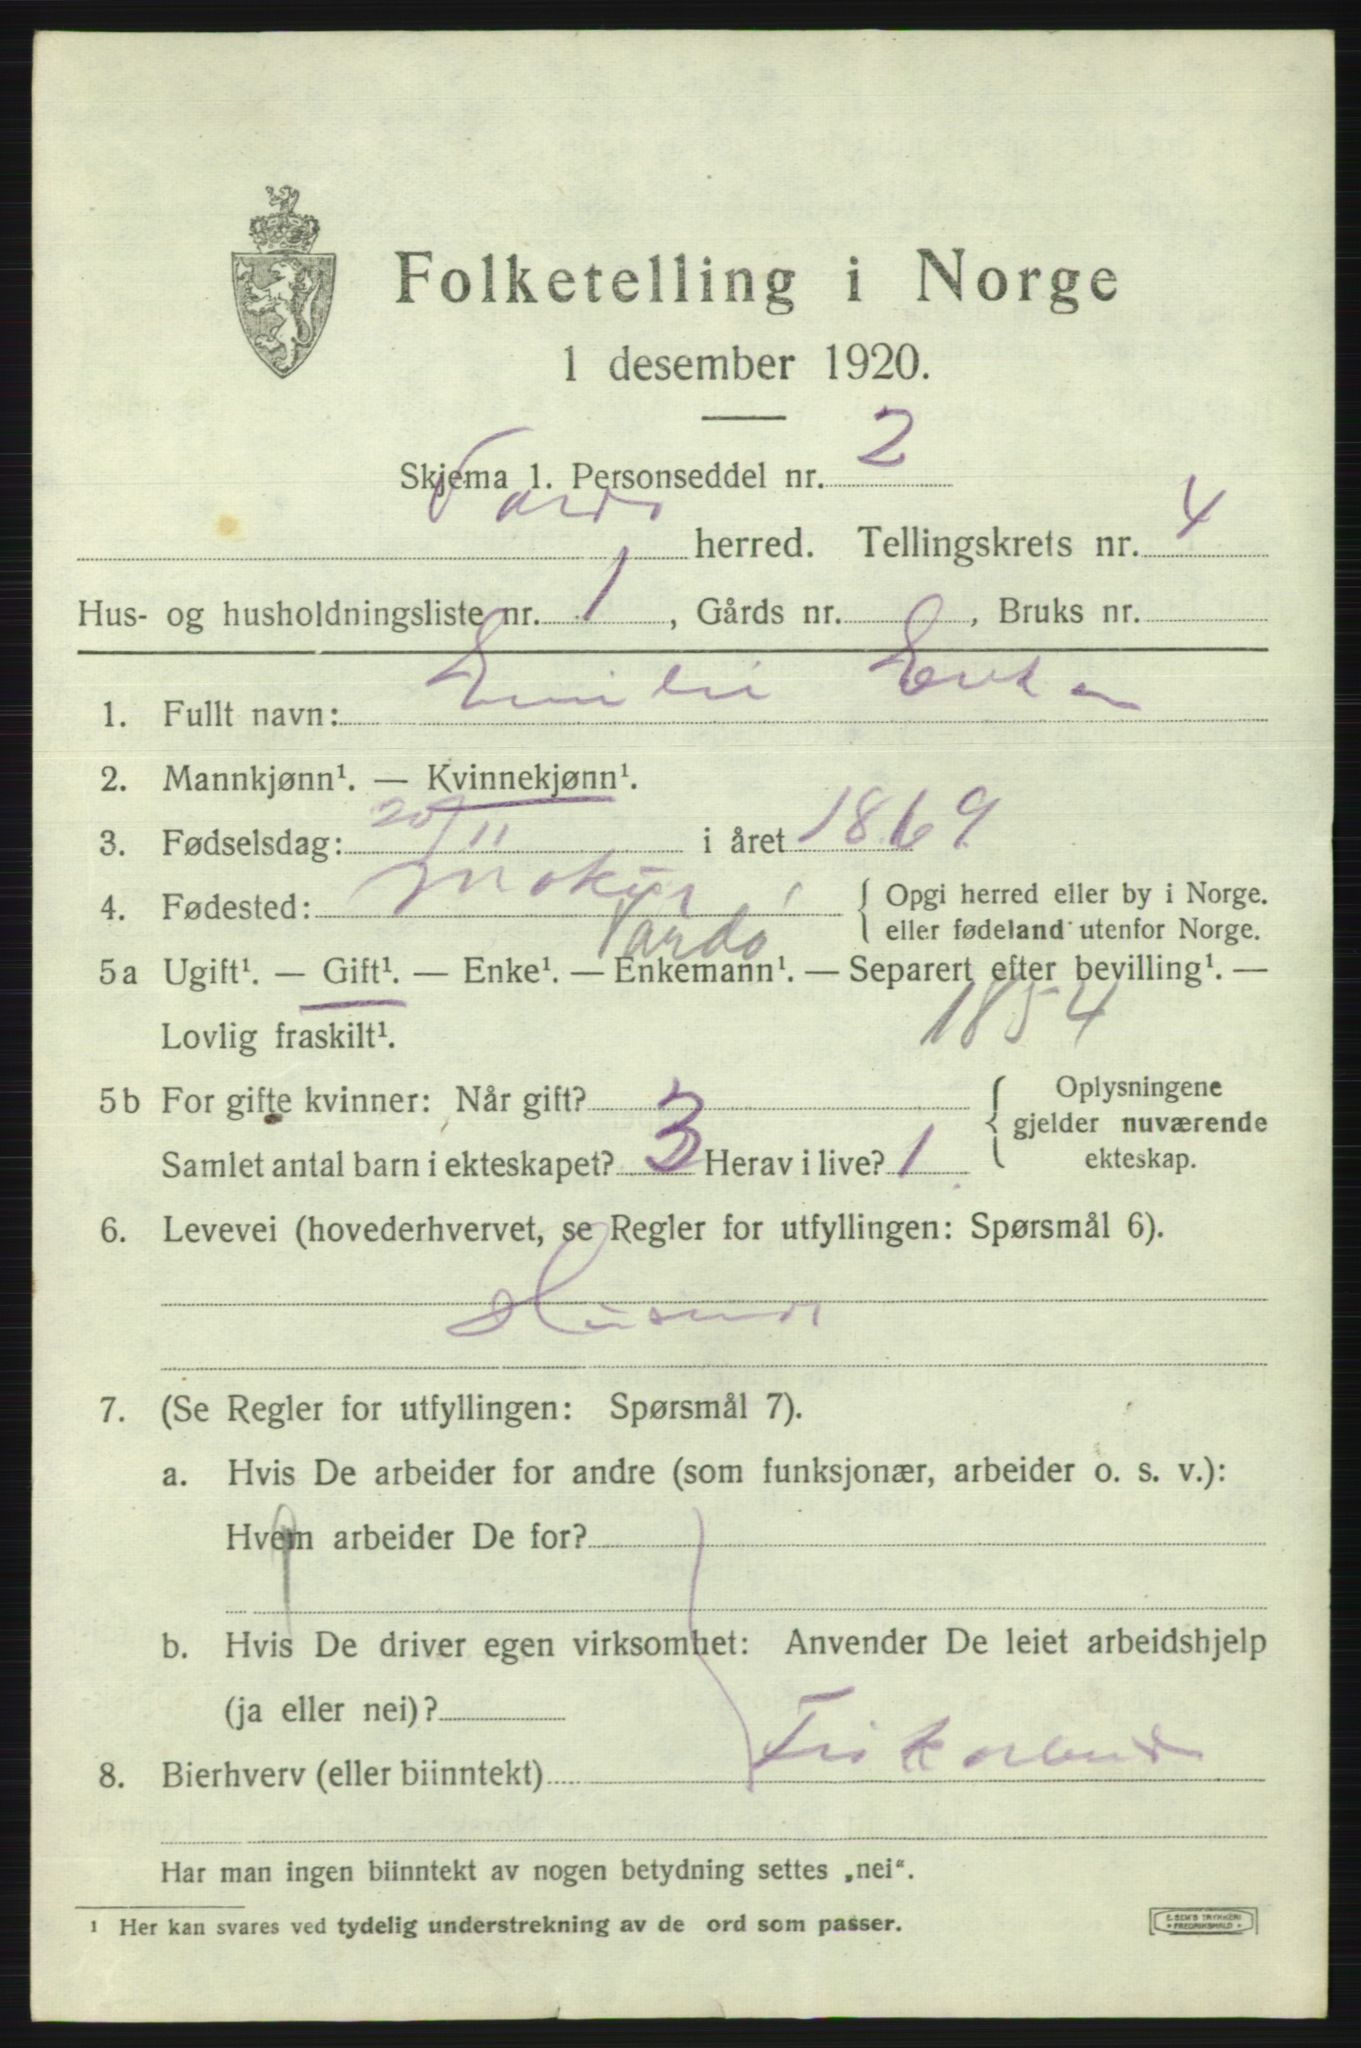 Folketelling i Norge
1 desember 1920.
Skjema 1. Personseddel nr. 2
Vardø herred. Tellingskrets nr. 4
Hus- og husholdningsliste nr. 1, Gårds nr. , Bruks nr.
1. Fullt navn: Emilie
2. Mannkjønn¹. — Kvinnekjønn¹.
3. Fødselsdag: 20/11 i året 1869
4. Fødested: { Opgi herred eller by i Norge.
eller fødeland utenfor Norge.
Vardø
5a Ugift¹. — Gift¹. — Enke¹. — Enkemann¹. — Separert efter bevilling¹. —
Lovlig fraskilt¹. 1854
5b For gifte kvinner: Når gift? { Oplysningene
gjelder nuværende
ekteskap.
Samlet antal barn i ekteskapet? 3 Herav i live? 1
6. Levevei (hovederhvervet, se Regler for utfyllingen: Spørsmål 6).
7. (Se Regler for utfyllingen: Spørsmål 7).
a. Hvis De arbeider for andre (som funksjonær, arbeider o. s. v.):
Hvem arbeider De for?
b. Hvis De driver egen virksomhet: Anvender De leiet arbeidshjelp
(ja eller nei)?
8. Bierhverv (eller biinntekt)
Har man ingen biinntekt av nogen betydning settes „nei“.
¹ Her kan svares ved tydelig understrekning av de ord som passer.
E. SEM'S TRYKKERI
• FREDRIKSHALD •